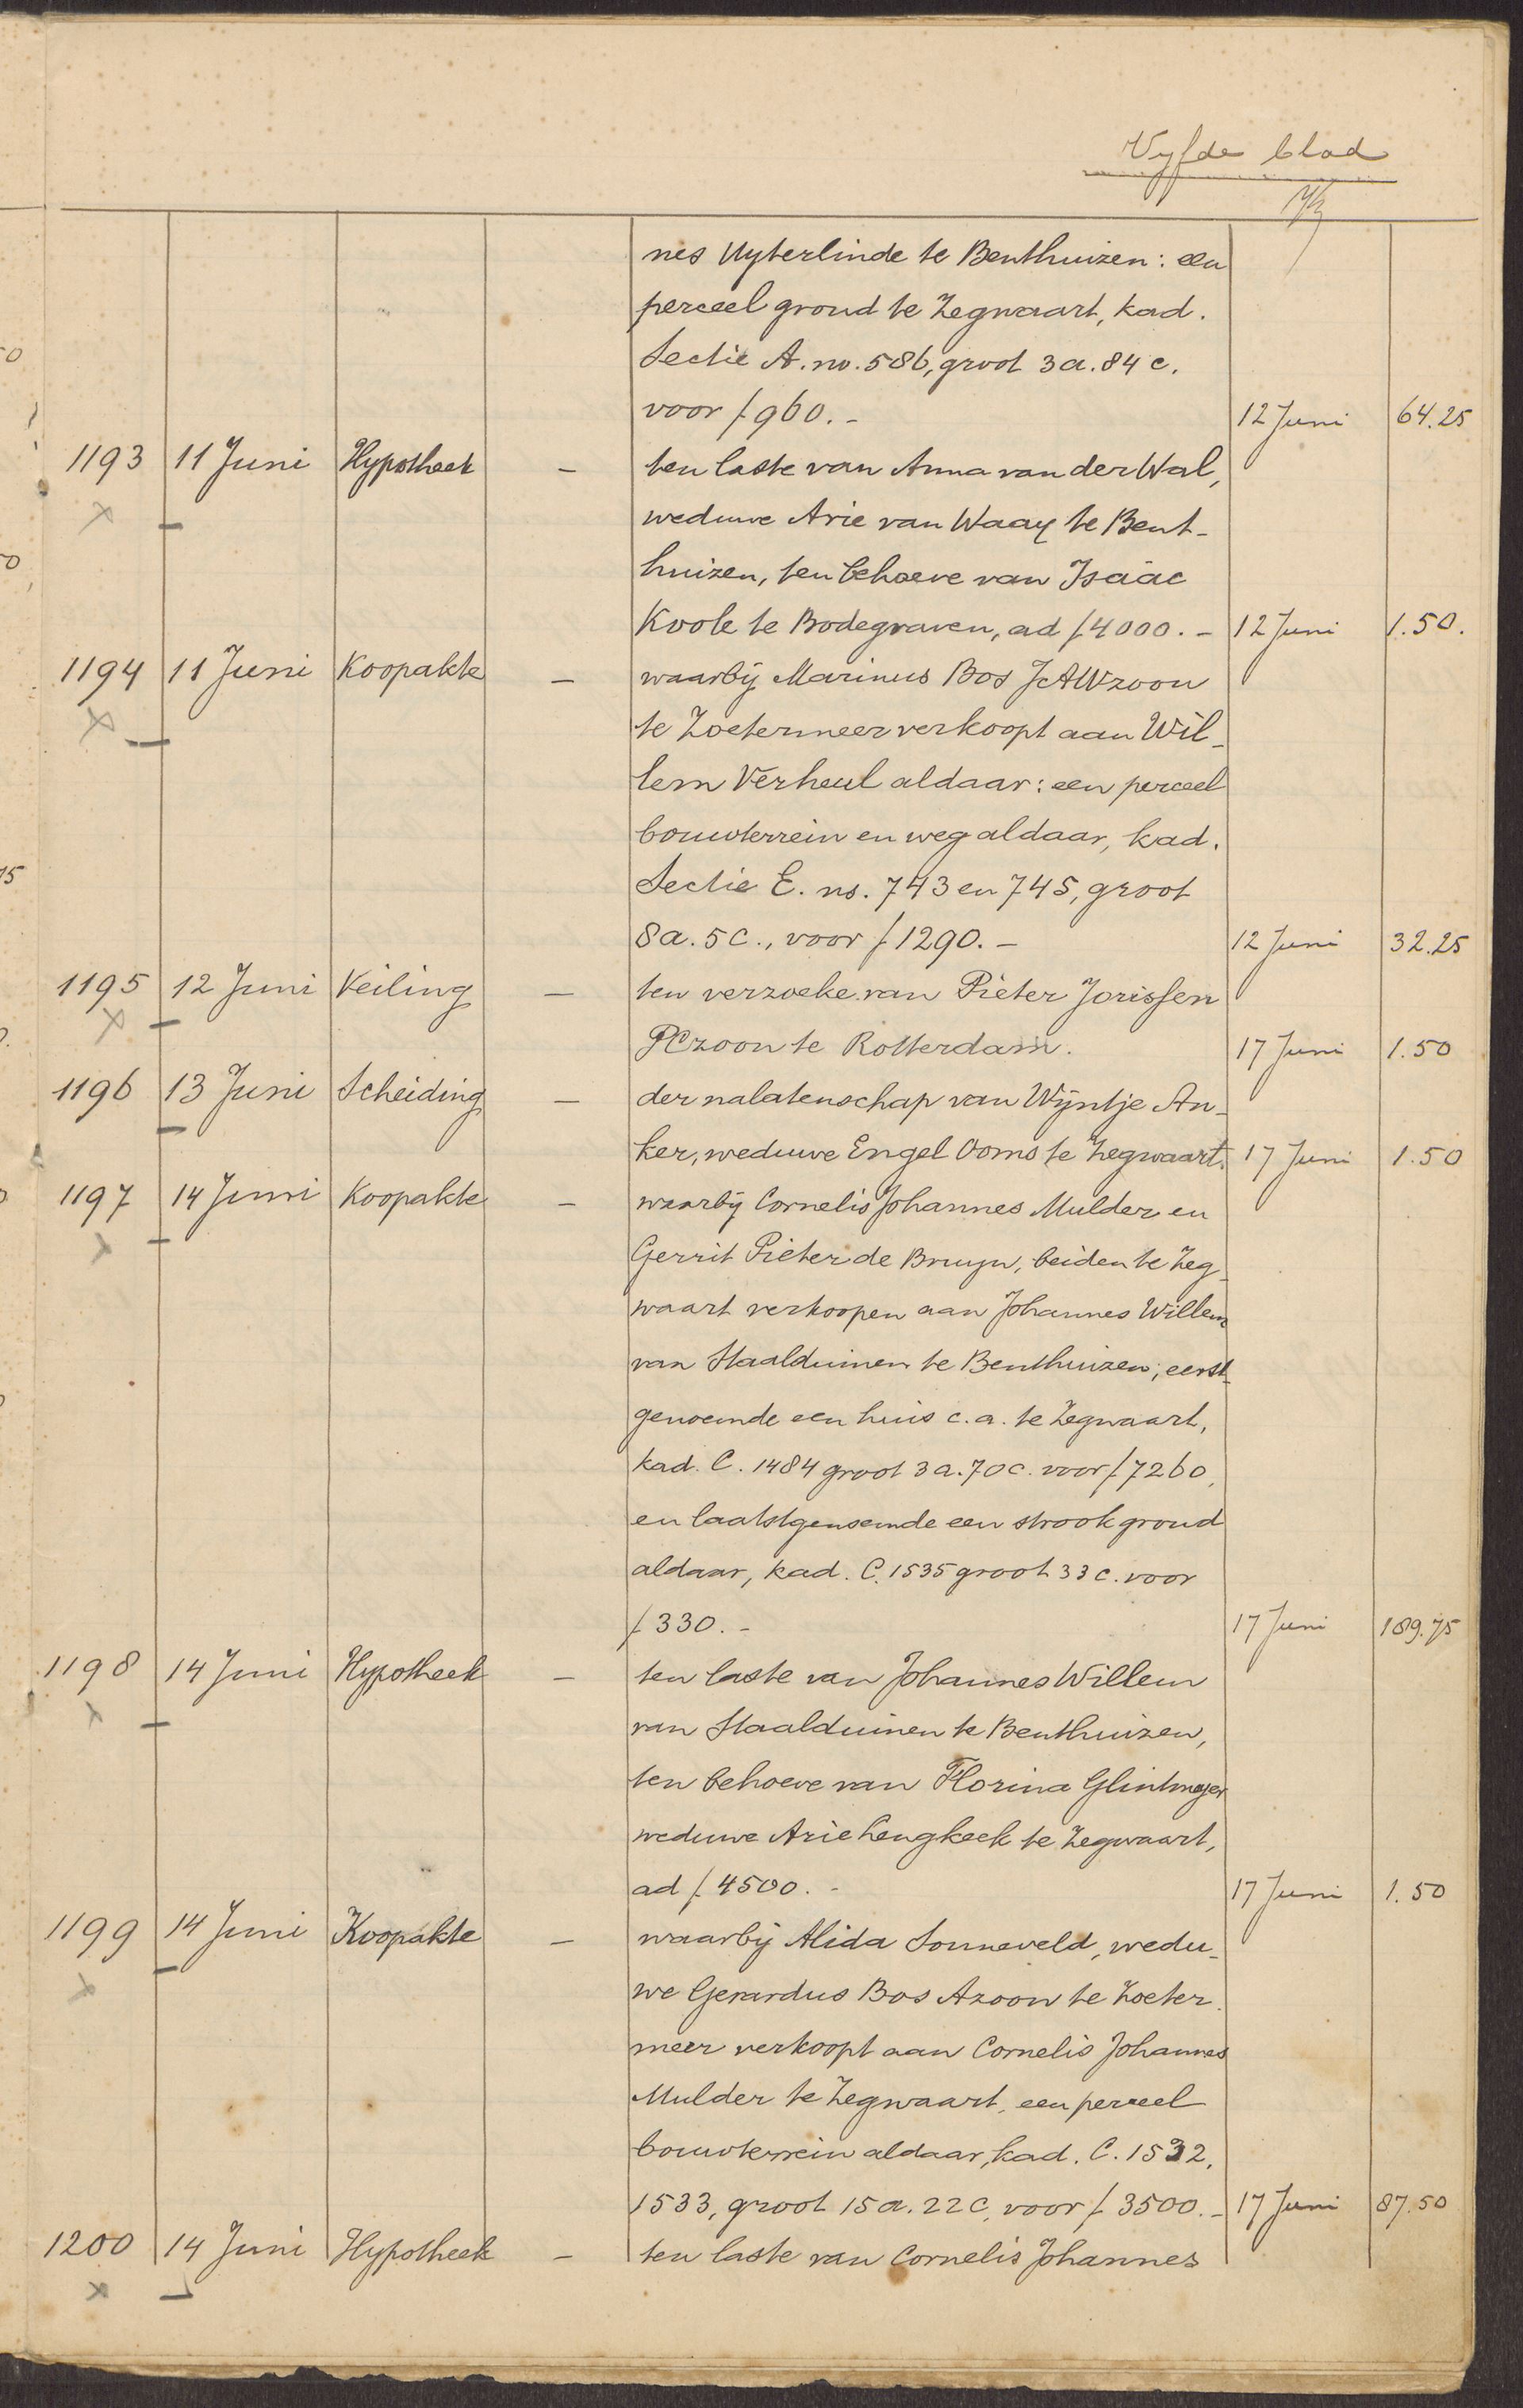 Vyfde blad
nes Uyterlinde te Benthuizen: een
perceel grond te Zegwaart, kad.
Sectie A. no. 586, groot 3 a. 84 c.
voor f 960.- 12 Juni 64.25
1193 11 Juni Hypotheek - ten laste van Anna van der Wal,
weduwe Arie van Waay te Bent-
huizen, ten behoeve van Isaäc
Koole te Bodegraven, ad f 4000.- 12 Juni 1.50.
1194 11 Juni Koopakte - waarbij Marinus Bos JAWzoon
te Zoetermeer verkoopt aan Wil-
lem Verheul aldaar: een perceel
bouwterrein en weg aldaar, kad.
Sectie E. ns. 743 en 745, groot
8 a. 5 c., voor f 1290.- 12 Juni 32.25
1195 12 Juni Veiling - ten verzoeke van Pieter Jorissen
PCzoon te Rotterdam. 17 Juni 1.50
1196 13 Juni Scheiding - der nalatenschap van Wijntje An-
ker, weduwe Engel Ooms te Zegwaart. 17 Juni 1.50
1197 14 Juni Koopakte - waarbij Cornelis Johannes Mulder en
Gerrit Pieter de Bruyn, beiden te Zeg-
waart verkoopen aan Johannes Willem
van Staalduinen te Benthuizen; eerst-
genoemde een huis c.a. te Zegwaart,
kad. C. 1484 groot 3 a. 70 c. voor f 7260,
en laatstgenoemde een strook grond
aldaar, kad. C. 1535 groot 33 c. voor
f 330.- 17 Juni 189.75
1198 14 Juni Hypotheek - ten laste van Johannes Willem
van Staalduinen te Benthuizen,
ten behoeve van Florina Glintmeijer
weduwe Arie Hengkeek te Zegwaart,
ad f 4500.- 17 Juni 1.50
1199 14 Juni Koopakte - waarbij Alida Sonneveld, wedu-
we Gerardus Bos Azoon te Zoeter-
meer verkoopt aan Cornelis Johannes
Mulder te Zegwaart, een perceel
bouwterrein aldaar, kad. C. 1532,
1533, groot 15 a. 22 c, voor f 3500.- 17 Juni 87.50
1200 14 Juni Hypotheek - ten laste van Cornelis Johannes